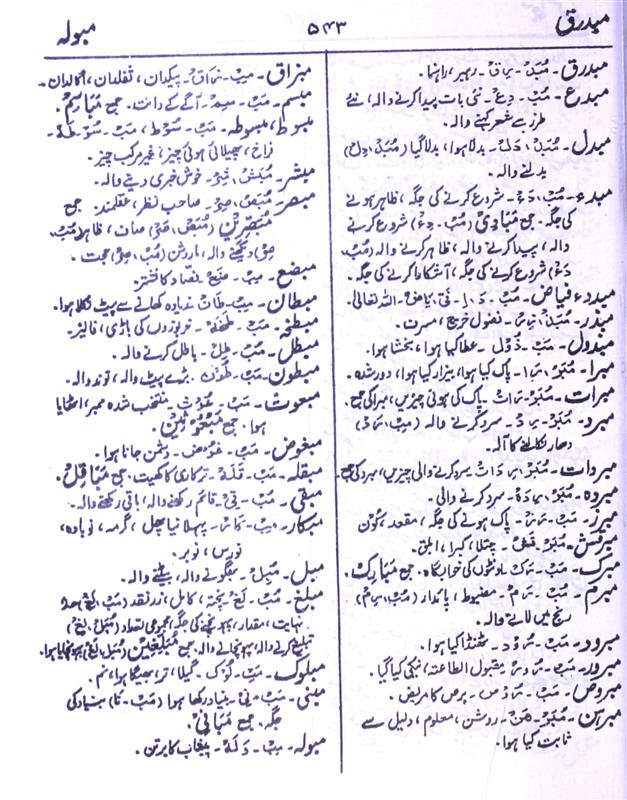 مبدرق
۵۴۳
مبولہ
مبدرق۔ مُبَدْ۔ رَق۔ رہبر، راہنما۔
مبدع۔ مُبْ۔ دِعْ۔ نئی بات پیدا کرنے والہ، نئے
طرز سے شعر کہنے والہ۔
مبدل۔ مُبَدْ، دَلْ۔ بدلا ہوا، بدلا گیا (مُبَدْ، دِلْ)
بدلنے والہ۔
مبدء۔ مَبْ، دَءْ۔ شروع کرنے کی جگہ، ظاہر ہونے
کی جگہ۔ جمع مَبَادِیْ (مُبْ۔ دِءْ) شروع کرنے
والہ، پیدا کرنے والہ، ظاہر کرنے والہ (مُبْ،
دَءْ) شروع کرنے کی جگہ، آشکارا کرنے کی جگہ۔
مبدء فیاض۔ مَبْ۔ دَ۔ اِ۔ فَیْ۔ یَاض۔ اللہ تعالیٰ۔
مبذر۔ مُبَذْ، ذِر۔ فضول خرچ، مسرف۔
مبذول۔ مَبْ۔ ذُوْل۔ عطا کیا ہوا، بخشا ہوا۔
مبرا۔ مُبَرْ، رَا۔ پاک کیا ہوا، بیزار کیا ہوا، دور شدہ۔
مبرات۔ مُبَرْ، رَات۔ پاک کی ہوئی چیزیں، مبرا کی جمع۔
مبرد۔ مُبَرْ۔ رِدْ۔ سرد کرنے والہ (مِبْ، رَدْ)
دھار نکالنے کا آلہ
مبردات۔ مُبَرْ، رِدَات۔ سرد کرنے والی چیزیں، مبرد کی جمع۔
مبردہ۔ مُبَرْ، رِدَہْ۔ سرد کرنے والی۔
مبرز۔ مَبْ۔ رَزْ۔ پاک ہونے کی جگہ، مقعد، گون
مبرقش۔ مُبَرْ۔ قَشْ۔ چتلا، کبرا، ابلق۔
مبرک۔ مَبْ۔ رَک۔ اونٹوں کی خوابگاہ۔ جمع مَبَارِک۔
مبرم۔ مُبْ۔ رَم۔ مضبوط، پائدار (مُبْ، رِم)
رنج میں لانے والہ۔
مبرود۔ مَبْ۔ رُوْد۔ ٹھنڈا کیا ہوا۔
مبرور۔ مَبْ۔ رُوْر۔ مقبول الطاعتہ، نیکی کیا گیا۔
مبروص۔ مَبْ۔ رُوْص۔ برص کا مریض۔
مبرہن۔ مُبَرْ۔ ہَنْ۔ روشن، معلوم، دلیل سے
ثابت کیا ہوا۔
مبزاق۔ مِبْ۔ زَاق۔ پیکدان، تفلدان، اگالدان۔
مبسم۔ مَبْ۔ سِم۔ آگے کے دانت۔ جمع مَبَاسِمْ۔
مبسوط، مبسوطہ۔ مَبْ۔ سُوْط، مَبْ۔ سُوْ۔ طَہْ۔
فراخ، پھیلائی ہوئی چیز، غیر مرکب چیز۔
مبشر۔ مُبَشْ، شِر۔ خوش خبری دینے والہ۔
مبصر۔ مُبَصْ، صِر۔ صاحب نظر، عقلمند۔ جمع
مُبَصِّرِیْن (مُبَصْ، صَر) صاف، ظاہر (مُبْ،
صِر) دیکھنے والہ، روشن (مُبْ، صَر) حجت۔
مبضع۔ مِبْ۔ ضَعْ۔ فصاد کا نشتر۔
مبطان۔ مِبْ۔ طَان۔ زیادہ کھانے سے پیٹ نکلا ہوا۔
مبطخہ۔ مَبْ۔ طَخَہْ۔ خربوزوں کی باڑی، فالیز۔
مبطل۔ مُبْ۔ طِلْ۔ باطل کرنے والہ۔
مبطون۔ مَبْ۔ طُوْن۔ بڑے پیٹ والہ، توند والہ۔
مبعوث۔ مَبْ۔ عُوْث۔ منتخب شدہ ممبر، اٹھایا
ہوا۔ جمع مَبْعُوْثِیْن۔
مبغوض۔ مَبْ۔ غُوْض۔ دشمن جانا ہوا۔
مبقلہ۔ مَبْ۔ قَلَہْ۔ ترکاری کا کھیت۔ جمع مَبَاقِلْ۔
مبقی۔ مُبْ۔ قِیْ۔ قائم رکھنے والہ، باقی رکھنے والہ۔
مبکار۔ مِبْ۔ کَار۔ پہلا نیا پھل، گرمہ، نوبادہ،
نورس، نوبر۔
مبل۔ مُبِلْ۔ بھگونے والہ، پلٹنے والہ۔
مبلغ۔ مَبْ۔ لَغْ۔ پختہ، کامل، زر نقد (مَبْ، لَغْ) حد
نہایت، مقدار، پہونچنے کی جگہ، مجموعی تعداد (مُبَلْ، لِغْ)
تبلیغ کرنے والہ، پہونچانے والہ۔ جمع مُبَلِّغِیْن (مُبَلْ، لَغْ) پہونچایا ہوا۔
مبلوک۔ مَبْ۔ لُوْک۔ گیلا، تر، بھیگا ہوا، نم۔
مبنی۔ مَبْ۔ نِیْ۔ بنیاد رکھا ہوا (مَبْ۔ نَا) بنیاد کی
جگہ۔ جمع مَبَانِیْ۔
مبولہ۔ مِبْ۔ وَلَہْ۔ پیشاب کا برتن۔